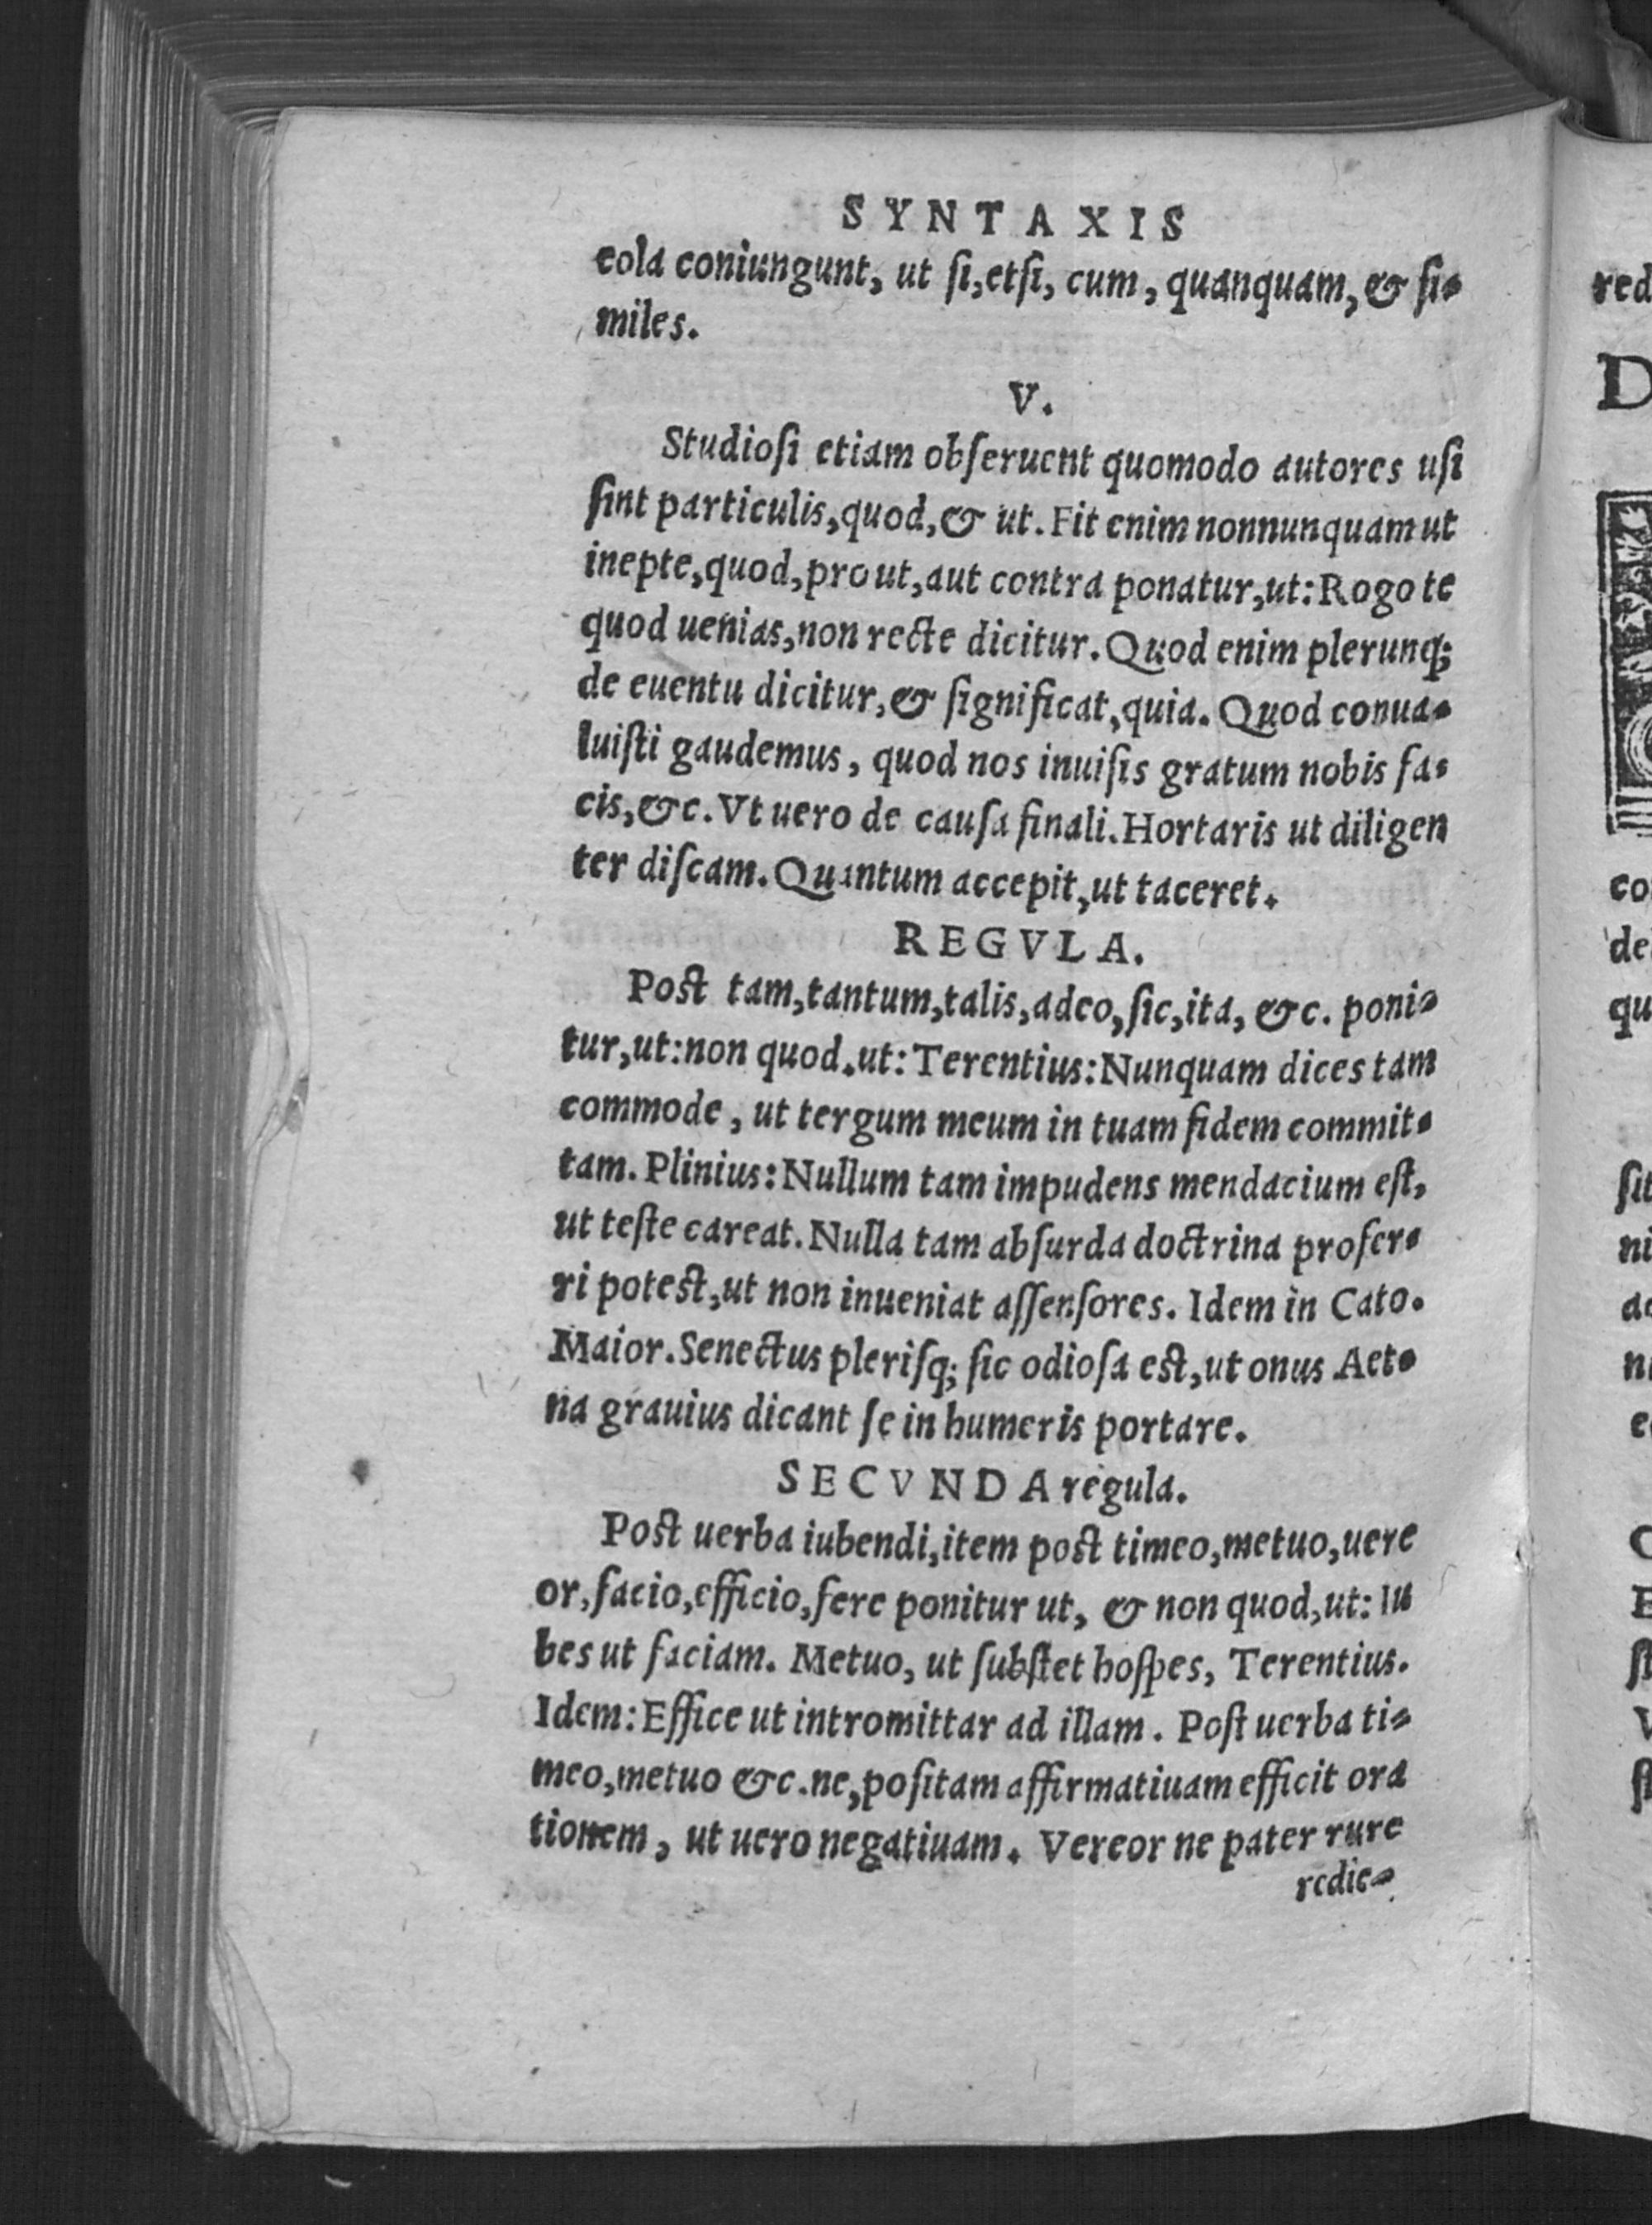 SYNTAXIS
cola coniungunt, ut ſi, etſi, cum, quanquam, & ſi-
miles.
V.
Studioſi etiam obſeruent quomodo autores uſi
ſint particulis, quod, & ut. Fit enim nonnunquam ut
inepte, quod, pro ut, aut contra ponatur, ut: Rogo te
quod uenias, non recte dicitur. Quod enim plerunq;
de euentu dicitur, & ſignificat, quia. Quod conua-
luiſti gaudemus, quod nos inuiſis gratum nobis fa-
cis, &c. Vt uero de cauſa finali. Hortaris ut diligen
ter diſcam. Quantum accepit, ut taceret.
REGVLA.
Poſt tam, tantum, talis, adeo, ſic, ita, &c. poni-
tur, ut: non quod. ut: Terentius: Nunquam dices tam
commode, ut tergum meum in tuam fidem commit-
tam. Plinius: Nullum tam impudens mendacium eſt,
ut teſte careat. Nulla tam abſurda doctrina profer-
ri poteſt, ut non inueniat aſſenſores. Idem in Cato.
Maior. Senectus pleriſq; ſic odioſa eſt, ut onus Aet-
na grauius dicant ſe in humeris portare.
SECVNDA regula.
Poſt uerba iubendi, item poſt timeo, metuo, uere
or, facio, efficio, fere ponitur ut, & non quod, ut: Iu
bes ut faciam. Metuo, ut ſubſtet hoſpes, Terentius.
Idem: Effice ut intromittar ad illam. Poſt uerba ti-
meo, metuo &c. ne, poſitam affirmatiuam efficit ora
tionem, ut uero negatiuam. Vereor ne pater rure
redie-